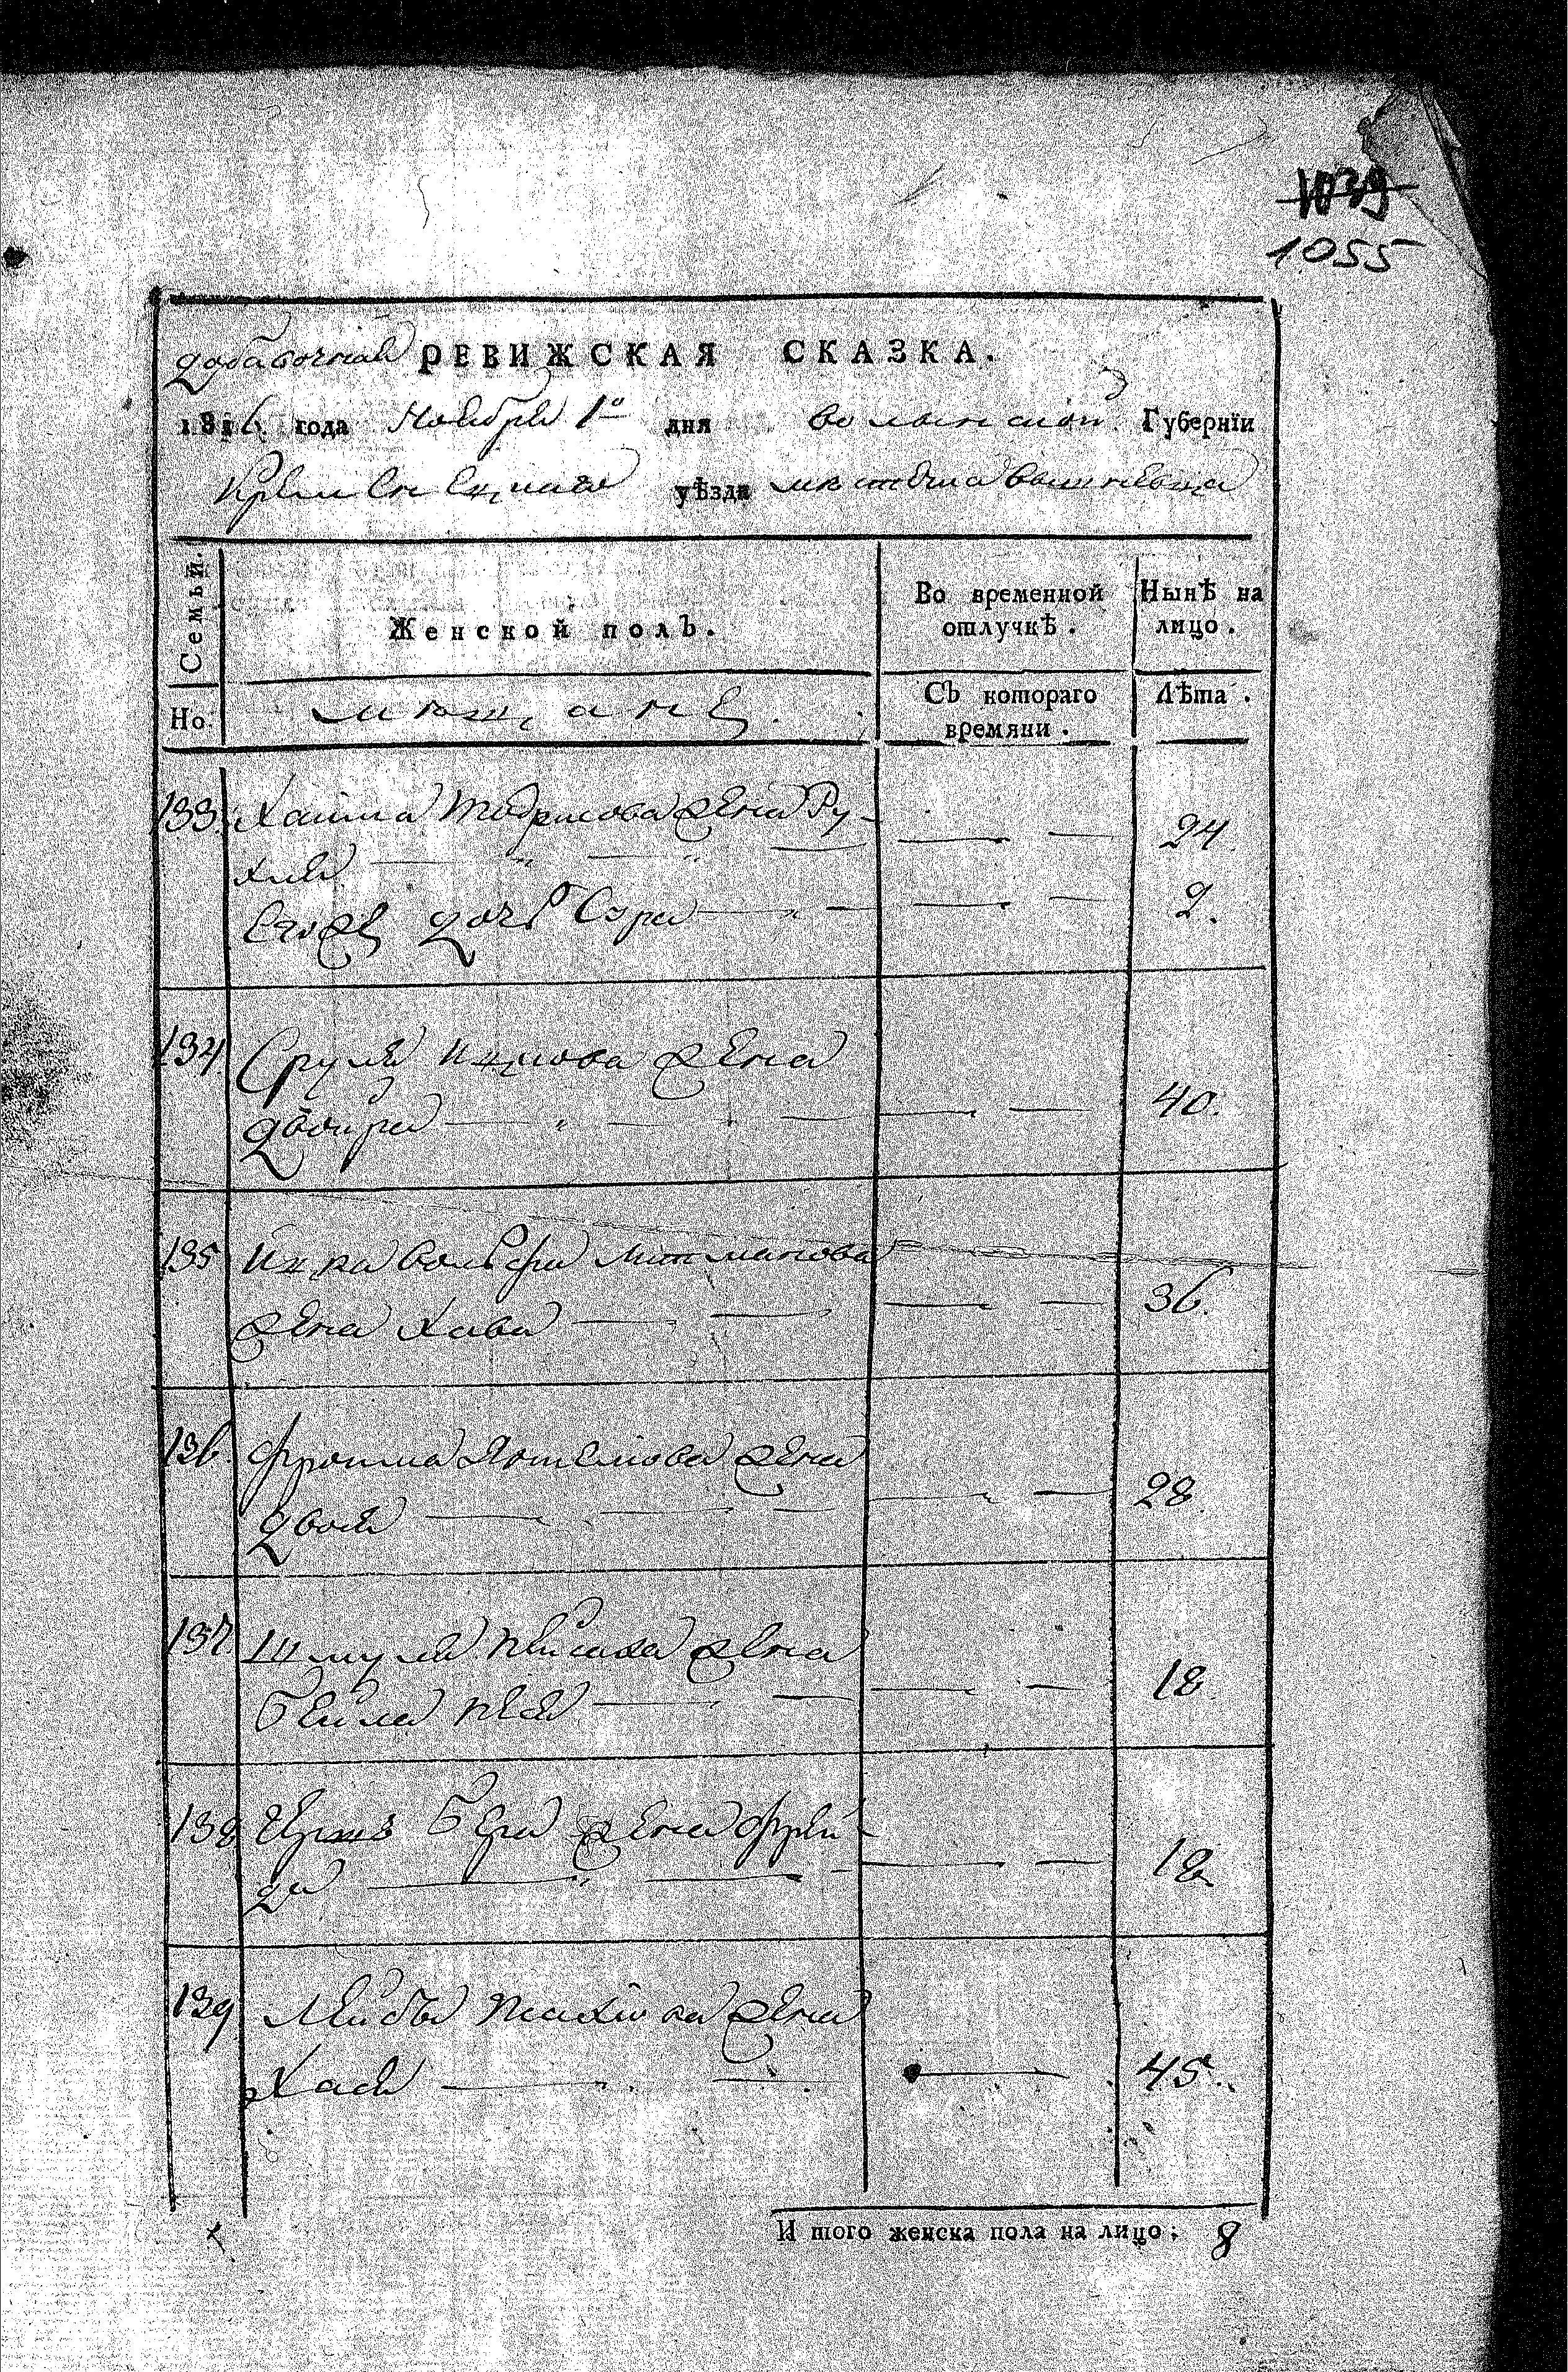 1039
1055
добавочная РЕВИЖСКАЯ СКАЗКА.
1816 года Ноября 1го дня Волынской Губернїи
Кременецкаго уѣзда местечка Вишневца
Семьй.
Женской полъ.
Во временной
отлучкѣ.
Нынѣ на
лицо.
Но.
Съ котораго
времяни.
Лѣта.
133. Хаима жена Ру-
хля — — — 24
Его же дочь Сура — — — 2.
134. Сруля Ицкова жена
Двойра — — — 40.
135 Ицка Вольфа жена Хава — — — 36.
136. жена
Двося — — 28
137. Шмуля жена
Бейла — — 18
138 Герша Бера жена Фрей-
да — — — 18
139 Лейбы жена
Хася — — 45.
И того женска пола на лицо: 8